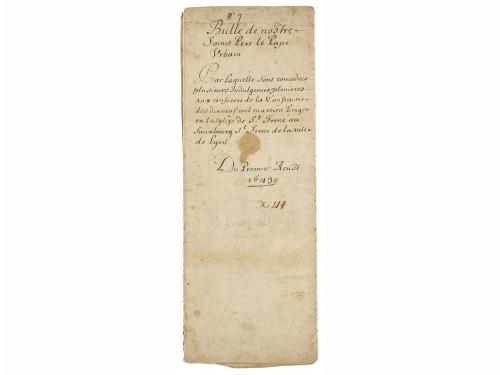 N° 7
Bulle de nostre
Sainct Pere le Pape
Urbain
Par laquelle sont concedees
plusieurs Indulgences plenieres
aux confreres de la Confrairie
des dixneuf mil martirs Erigee
en l'esglize de St Irene au
fauxbourg St Irene de la ville
de Lyon
Du Premier Aoust
1643